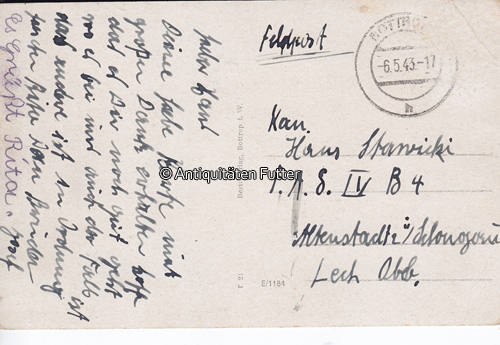 Lieber Hans!
Diese liebe Karte mit
großen Dank erhalten hoffe
daß es Dir noch gut geht
wo es bei mir auch der Fall ist
das andre ist in Ordnung
Dein Bruder Josef
Es grüßt Rita.
Feldpost
BOTTROP
-6.5.43.-17
h
Kan.
Hans Stawicki
IV B 4
Altenstadt
Lech Obb.
© Antiquitäten Futter
Bottrop i. W.
E/1184